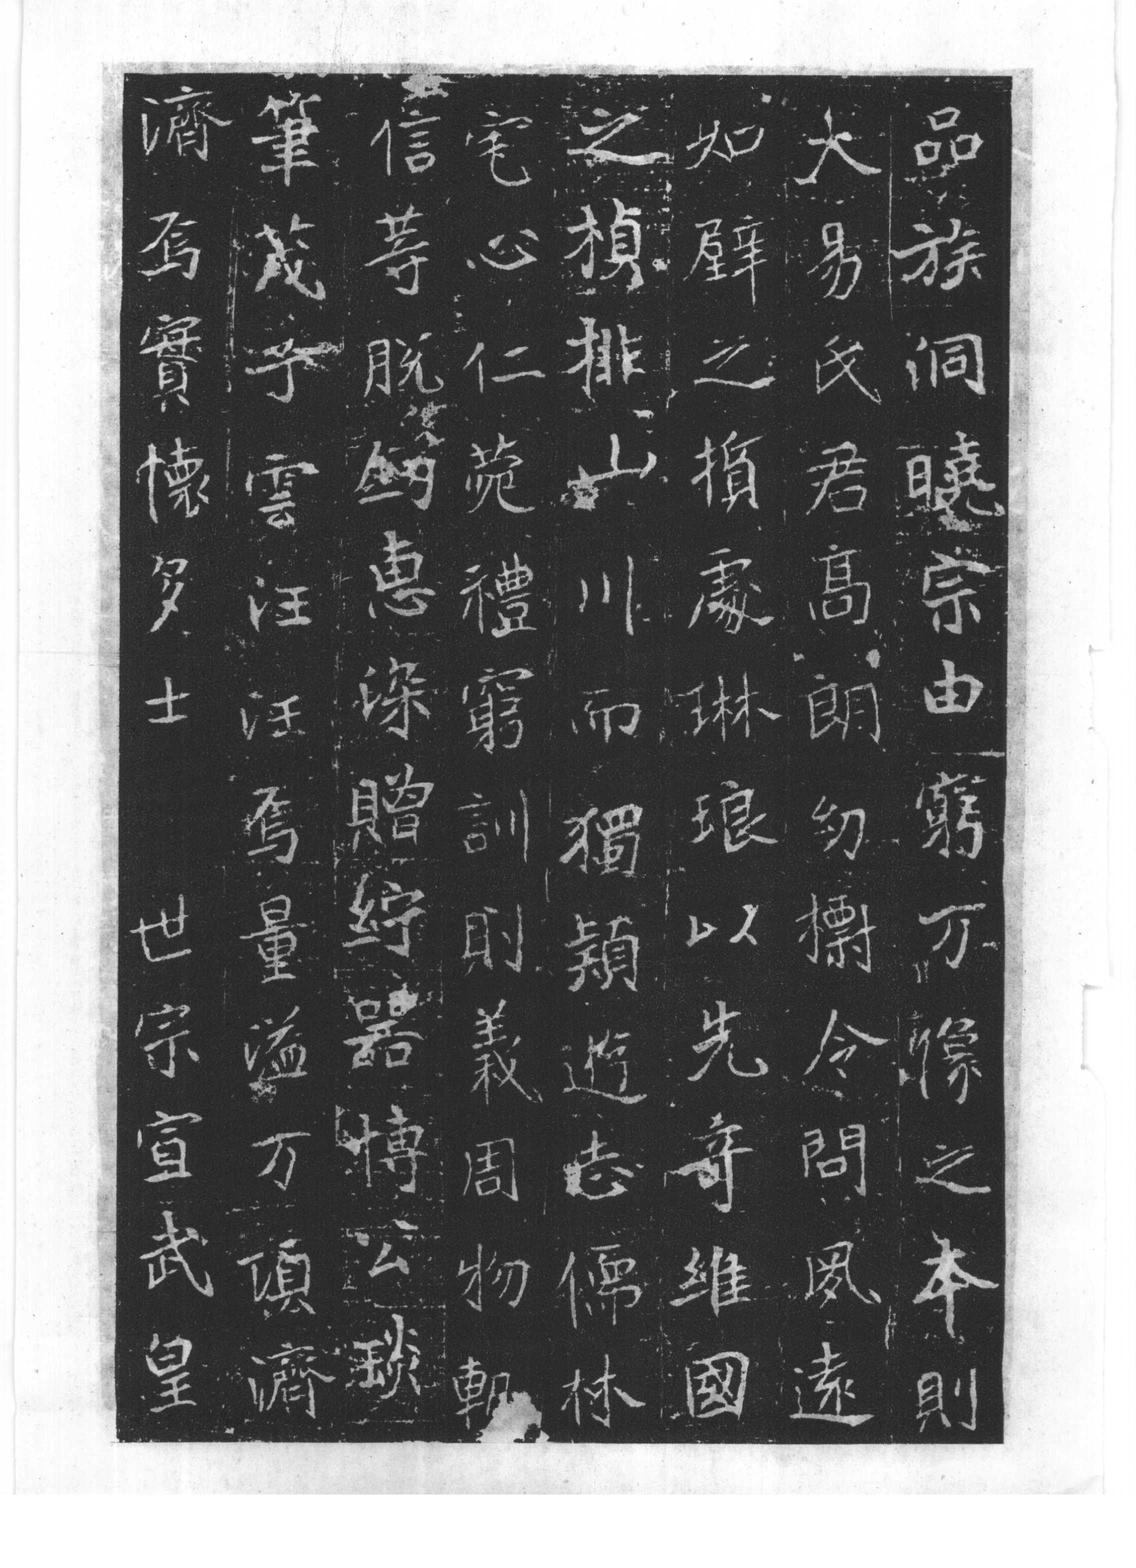 品族洞曉宗由窮万像之本則
大易氏君高朗幼摽令問夙遠
如璧之質處琳琅以先奇維國
之楨排山川而獨穎遊志儒林
宅心仁菀禮窮訓則義周物軌
信等脫劒惠深贈紵器博公琰
筆茂子雲汪汪焉量溢万頃濟
濟焉實懷多士 世宗宣武皇